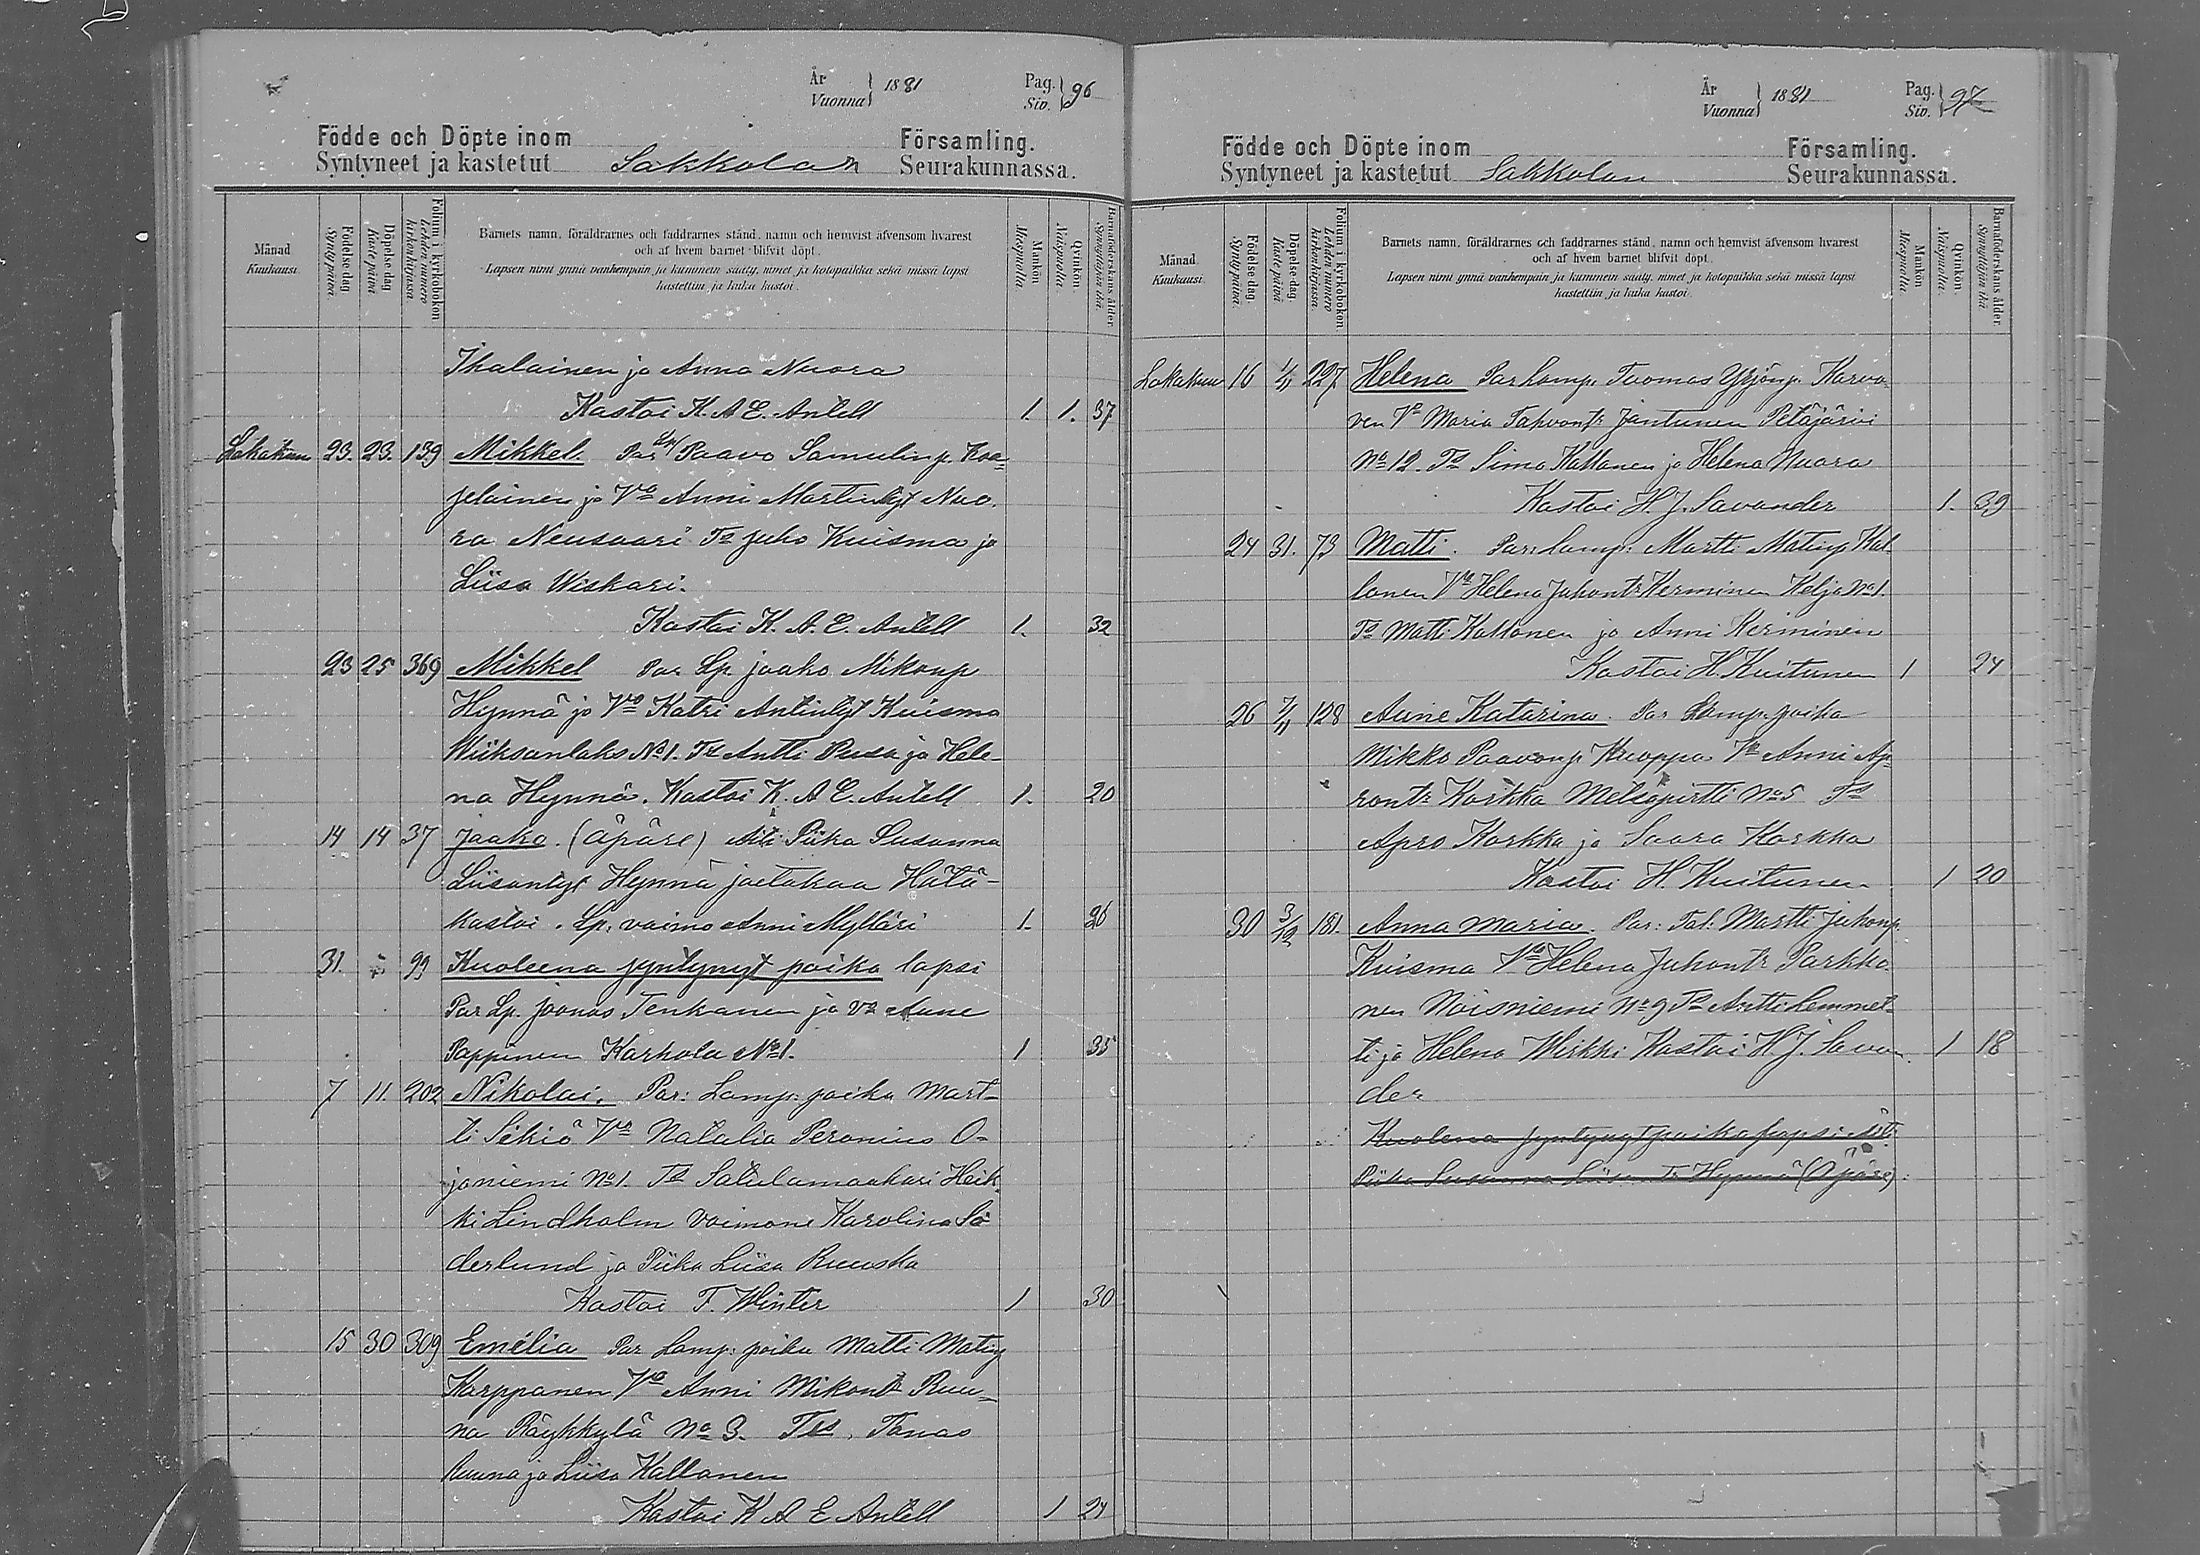 År
Vuonna } 1881
Pag.
Siv. } 96
Födde och Döpte inom Församling.
Syntyneet ja kastetut Sakkolan Seurakunnassa.
Månad
Kuukausi.
Födelsedag
Syntypäivä.
Döpelsedag
Kastepäivä
Folium i kyrkoboken
Lehden numero kirkonkirjassa.
Barnets namn, föräldrarnes och faddrarnes stånd, namn och hemvist äfvensom hvarest
och af hvem barnet blifvit döpt.
Lapsen nimi ynnä vanhempain ja kummein sääty, nimet ja kotopaikka sekä missä lapsi
kastettiin ja kuka kastoi.
Mankön
Miespuolta.
Qvinkön.
Naispuolta.
Barnaföderskans ålder.
Synnyttäjän ikä
Ihalainen ja Anna Nuora
Kastoi K. A E. Antell 1. 1. 37
Lokakuu 23. 23. 139 Mikkel. Par Lp/ Paavo Samulinp. Koa-
jelainen ja Vo Anni Martintyt Nuo-
ra Neusaari Ts Juho Kuisma ja
Liisa Wiskari.
Kastoi K. A. E. Antell 1. 32
23 25 369 Mikkel Par Lp. Jaako Mikonp
Hynnä ja Vo Katri Antintyt Kuisma
Wiiksanlaks No 1. Ts Antti Pusa ja Hele-
na Hynnä. Kastoi K. A E. Antell 1. 20
14 14 37 Jaako. (äpäre) Äiti Piika Susanna
Liisantyt Hynnä Hätä-
kastoi. Lp. vaimo Anni Mylläri 1. 26
31. 99 Kuoleena syntynyt poika lapsi
Par Lp. Joonas Tenkanen ja Vo Anne
Pappinen Karhola No 1. 1 35
7 11. 202 Nikolai. Par: Lamp: poika Mart-
ti Sikiö Vo Natalia Peronius O-
janiemi No 1. Ts Satulamaakari Heik-
ki Lindholm vaimone Karolina Sö
derlund ja Piika Liisa Ruuska
Kastoi T. Winter 1 30
15 30 309 Emelia Par Lamp: poika Matti Matinp
Karppanen Vo Anni Mikontr Ruu-
na Räykkylä No 3. Tss. Tanas
Ruuna ja Liisa Kallonen
Kastoi K A E Antell 1 24
År
Vuonna } 1881
Pag.
Siv. } 97
Födde och Döpte inom Församling.
Syntyneet ja kastetut Sakkolan Seurakunnassa.
Månad
Kuukausi.
Födelsedag
Syntypäivä.
Döpelsedag.
Kastepäivä
Folium i kyrkoboken
Lehden numero kirkonkirjassa.
Barnets namn, föräldrarnes och faddrarnes stånd, namn och hemvist äfvensom hvarest
och af hvem barnet blifvit döpt.
Lapsen nimi ynnä vanhempain ja kummein sääty, nimet ja kotopaikka sekä missä lapsi
kastettiin ja kuka kastoi.
Mankön
Miespuolta
Qvinkön.
Naispuolta.
Barnaföderskans ålder.
Synnyttäjän ikä
Lokakuu 16 1/11 227 Helena Par Lamp. Tuomas Yrjönp. Karvo
nen Vo Maria Tahvontr Jantunen Petäjärvi
No 12. Ts Simo Kallonen ja Helena Nuora
Kastoi H. J. Savander 1. 39
24 31. 73 Matti. Par: Lamp: Martti Matinp Kal
lonen Vo Helena Juhontr Kerminen Kelja No 1.
Ts Matti Kallonen ja Anni Kerminen
Kastoi H. Kuitunen 1 24
26 7/11 128 Anne Katarina. Par Lamp. poika
Mikko Paavonp. Kuoppa Vo Anni Ap-
rontr Korkka Metsäpirtti No 5 Ts
Apro Korkka ja Saara Korkka
Kastoi H. Kuitunen 1 20
30 3/12 181. Anna Maria. Par: Tal: Martti Juhonp.
Kuisma Vo Helena Juhontr Parkko-
nen Noisniemi No 9 Ts Antti Lemmet-
ti ja Helena Wirkki Kastoi H. J. Savan 1 18
der
Kuolena syntynyt poika lapsi Äiti
Piika Susanna Liisantr Hynnä (Äpäre)